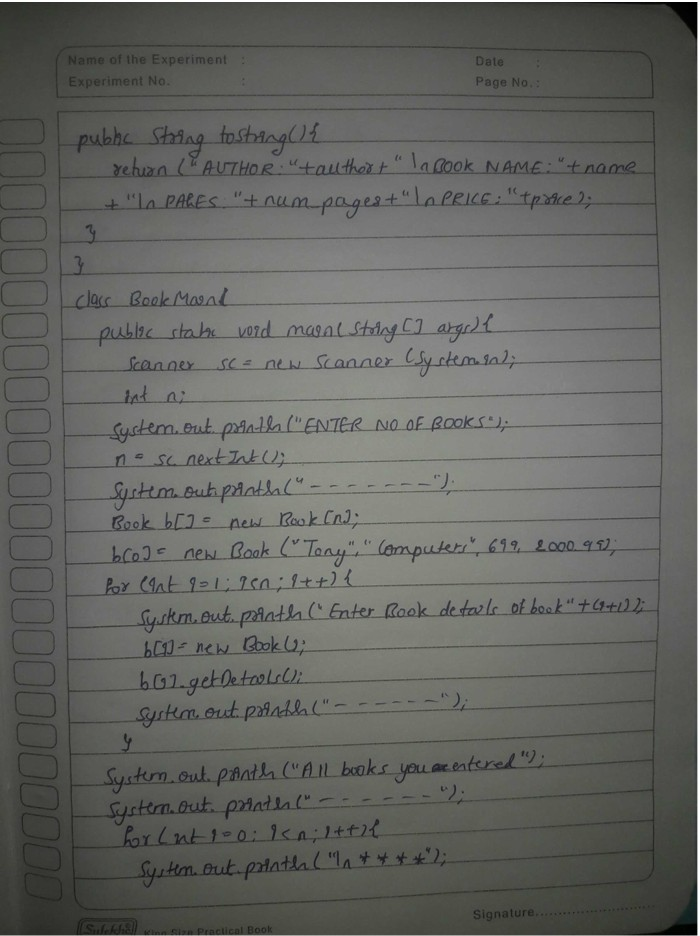 Name of the Experiment :
Date :
Experiment No. :
Page No. :
public String toString(){
return ("AUTHOR: "+author+" \n BOOK NAME: "+name
+ "\n PAGES: "+ num_pages+"\n PRICE: "+price);
}
}
class BookMain{
public static void main(String[] args){
Scanner sc = new Scanner (System.in);
int n;
System.out.println("ENTER NO OF BOOKS");
n = sc.nextInt();
System.out.println("- - - - - - -");
Book b[] = new Book[n];
b[0] = new Book ("Tony", "Computers", 699, 2000.95);
for (int i=1; i<n; i++) {
System.out.println("Enter Book details of book"+(i+1));
b[i]= new Book();
b[i].getDetails();
System.out.println("- - - - - -");
}
System.out.println("All books you entered");
System.out.println("- - - - - -");
for (int i=0; i<n; i++){
System.out.println("\n * * * *");
Signature
Sulekha King Size Practical Book